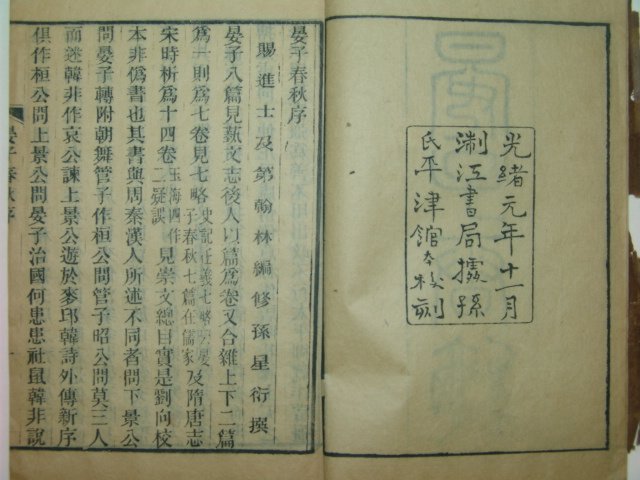 光緒元年十一月
淛江書局據孫
氏平津館本校刻
晏子春秋序
賜進士及第翰林編修孫星衍撰
晏子八篇見藝文志後人以篇爲卷又合雜上下二篇
爲一則爲七卷見七略史記正義七略云晏子春秋七篇在儒家及隋唐志
宋時析爲十四卷玉海四作二疑誤見崇文總目實是劉向校
本非僞書也其書與周秦漢人所述不同者問下景公
問晏子轉附朝舞管子作桓公問管子昭公問莫三人
而迷韓非作哀公諫上景公遊於麥邱韓詩外傳新序
俱作桓公問上景公問晏子治國何患患社鼠韓非說
晏子春秋序